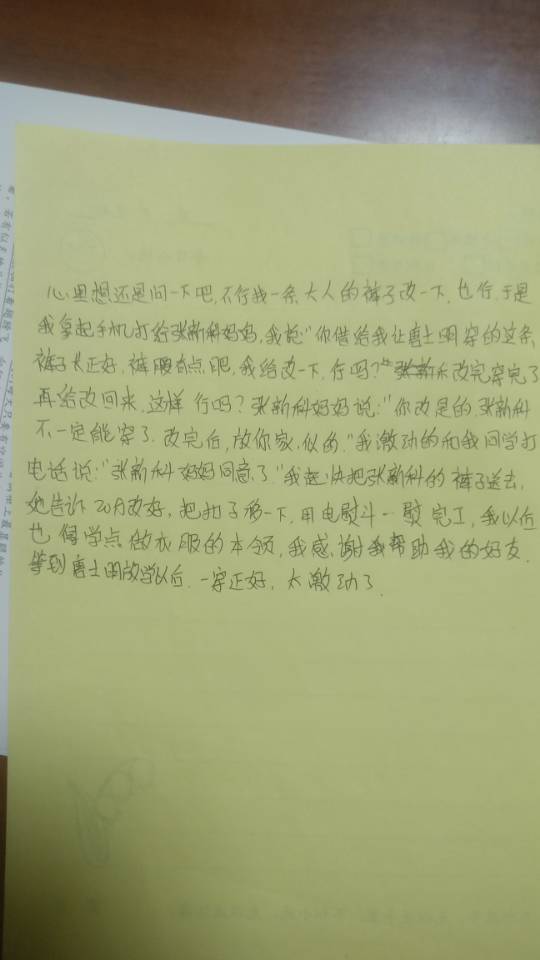 心里想还是问一下吧,不行找一条大人的裤子改一下,也行,于是
我拿起手机打给张新科妈妈,我说:"你借给我让唐士明穿的这条
裤子长正好,裤腰有点肥,我给改一下,行吗?改完穿完了
再给改回来,这样行吗?张新科妈妈说:"你改是的,张新科
不一定能穿了,改完后,放你家,似的."我激动的和我同学打
电话说:"张新科妈妈同意了."我赶快把张新科的裤子送去,
她告诉改好,把扣子移一下,用电熨斗一熨完工,我以后
也得学点做衣服的本领,我感谢我帮助我的好友.
等到唐士明放学以后.一穿正好,太激动了.